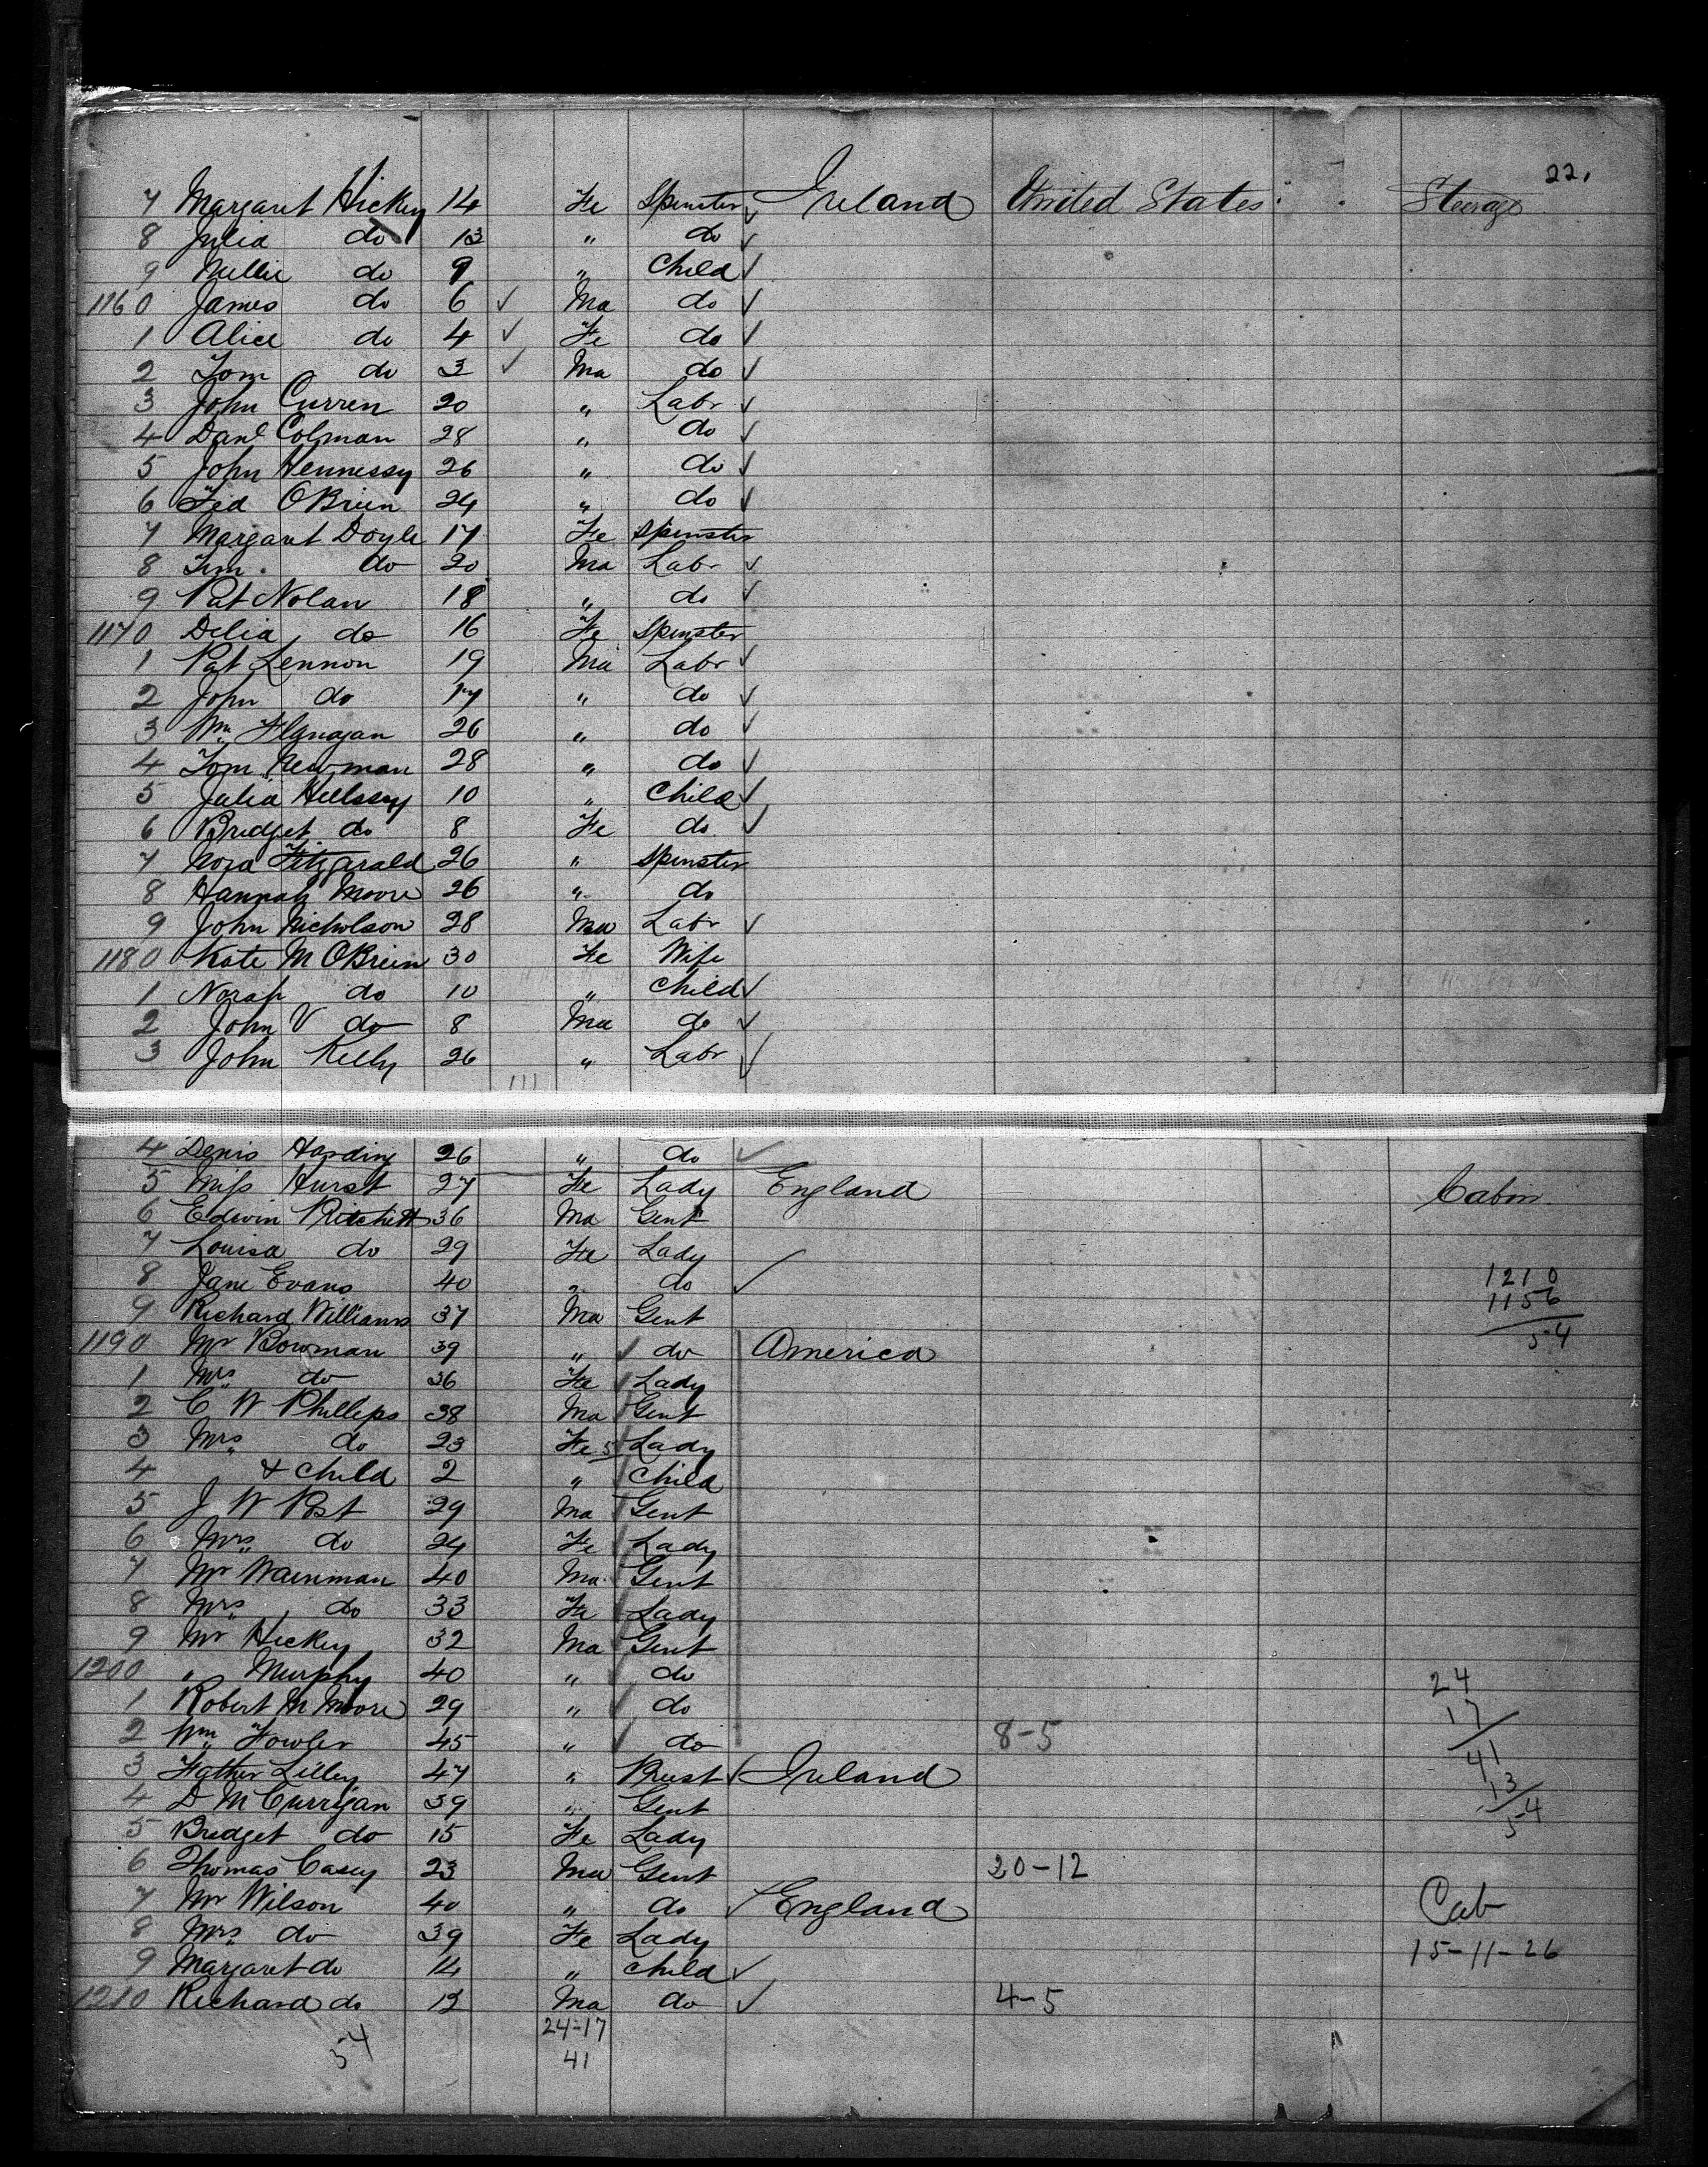 22.
7 Margaret Hickey 14 Fe Spinster Ireland United States Steerage
8 Julia do 13 " do
9 Nellie do 9 " Child
1160 James do 6 Ma do
1 Alice do 4 Fe do
2 Tom do 3 Ma do
3 John Curren 20 " Labr
4 Danl Colman 28 " do
5 John Hennessy 26 " do
6 OBrien 24 " do
7 Margaret Doyle 17 Fe Spinster
8 do 20 Ma Labr
9 Pat Nolan 18 " do
1170 Delia do 16 Fe Spinster
1 Pat Lennon 19 Ma Labr
2 John do 17 " do
3 Wm Flanagan 26 " do
4 Tom Newman 28 " do
5 Julia 10 " Child
6 Bridget do 8 Fe do
7 Nora Fitzgarald 26 " Spinster
8 Hannah Moore 26 " do
9 John Nicholson 28 Ma Labr
1180 Kate M OBrien 30 Fe Wife
1 Norah do 10 " Child
2 John V do 8 Ma do
3 John Kelly 26 " Labr
4 Denis Harding 26 " do
5 Miss Hurst 27 Fe Lady England Cabin
6 Edwin Pritchett 36 Ma Gent
7 Louisa do 29 Fe Lady
8 Jane Evans 40 " do 1210
9 Richard Williams 37 Ma Gent 1156
1190 Mr Bowman 39 " do America 54
1 Mrs do 36 Fe Lady
2 C W Phillips 38 Ma Gent
3 Mrs do 23 Fe 5 Lady
4 & Child 2 " Child
5 J W Post 29 Ma Gent
6 Mrs do 24 Fe Lady
7 Mr Wainman 40 Ma Gent
8 Mrs do 33 Fe Lady
9 Mr Hickey 32 Ma Gent
1200 " Murphy 40 " do 24
1 Robert M Moore 29 " do 17
2 Wm Fowler 45 " do 8-5 41
3 Father Lilley 47 " Priest Ireland 13
4 D McCurrigan 39 " Gent 54
5 Bridget do 15 Fe Lady
6 Thomas Casey 23 Ma Gent 20-12
7 Mr Wilson 40 " do England Cab
8 Mrs do 39 Fe Lady 15-11-26
9 Margaret do 14 " Child
1210 Richard do 12 Ma do 4-5
54 24-17
41